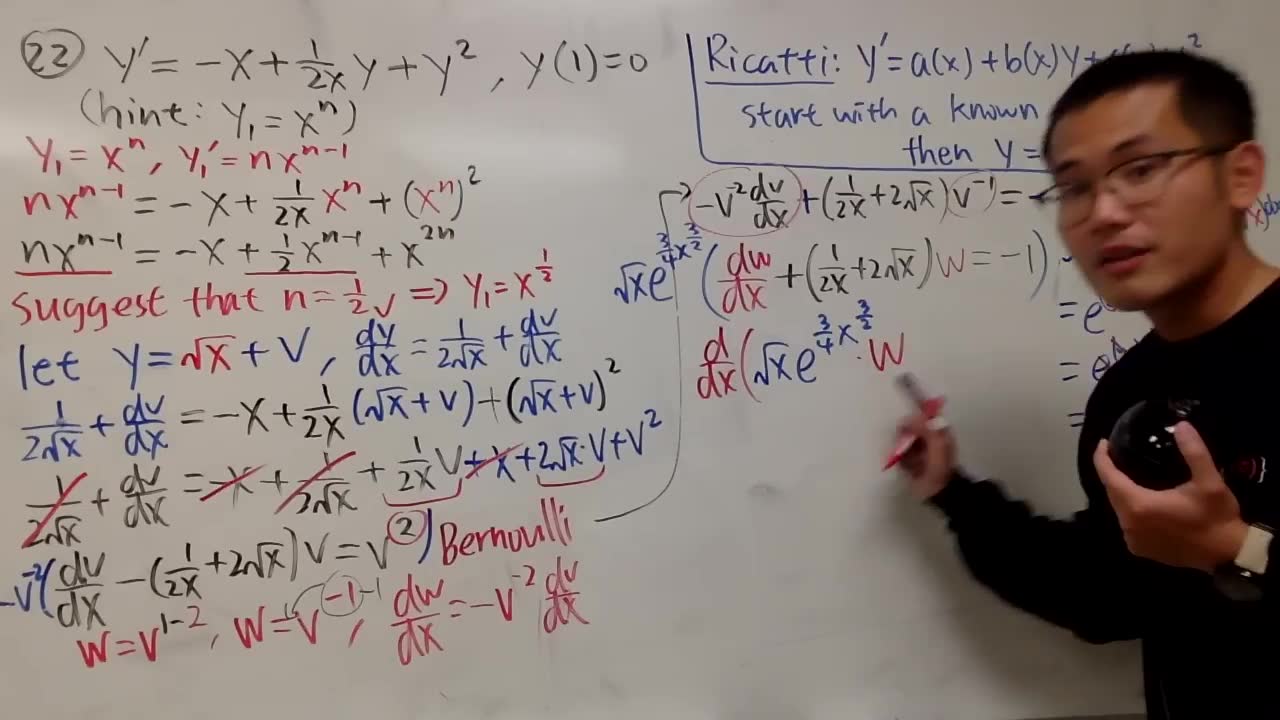 22 y' = -x + 1/(2x) y + y², y(1)=0
(hint: y₁ = xⁿ)
y₁ = xⁿ, y₁' = nxⁿ⁻¹
nxⁿ⁻¹ = -x + 1/(2x) xⁿ + (xⁿ)²
nxⁿ⁻¹ = -x + 1/2 xⁿ⁻¹ + x²ⁿ
suggest that n = 1/2 √ => y₁ = x^(1/2)
let y = √x + v, dy/dx = 1/(2√x) + dv/dx
1/(2√x) + dv/dx = -x + 1/(2x) (√x + v) + (√x + v)²
1/(2√x) + dv/dx = -x + 1/(2√x) + 1/(2x) v + x + 2√x·v + v²
-v⁻²(dv/dx - (1/(2x) + 2√x)v = v²) Bernoulli
w = v¹⁻², w = v⁻¹⁻¹, dw/dx = -v⁻² dv/dx
Ricatti: y' = a(x) + b(x)y +
start with a known
then y =
-v⁻² dv/dx + (1/(2x) + 2√x)v⁻¹ = -
√x e^(3/4 x^(3/2)) (dw/dx + (1/(2x) + 2√x)w = -1)
= e
d/dx(√x e^(3/4 x^(3/2)) · w
= e
=